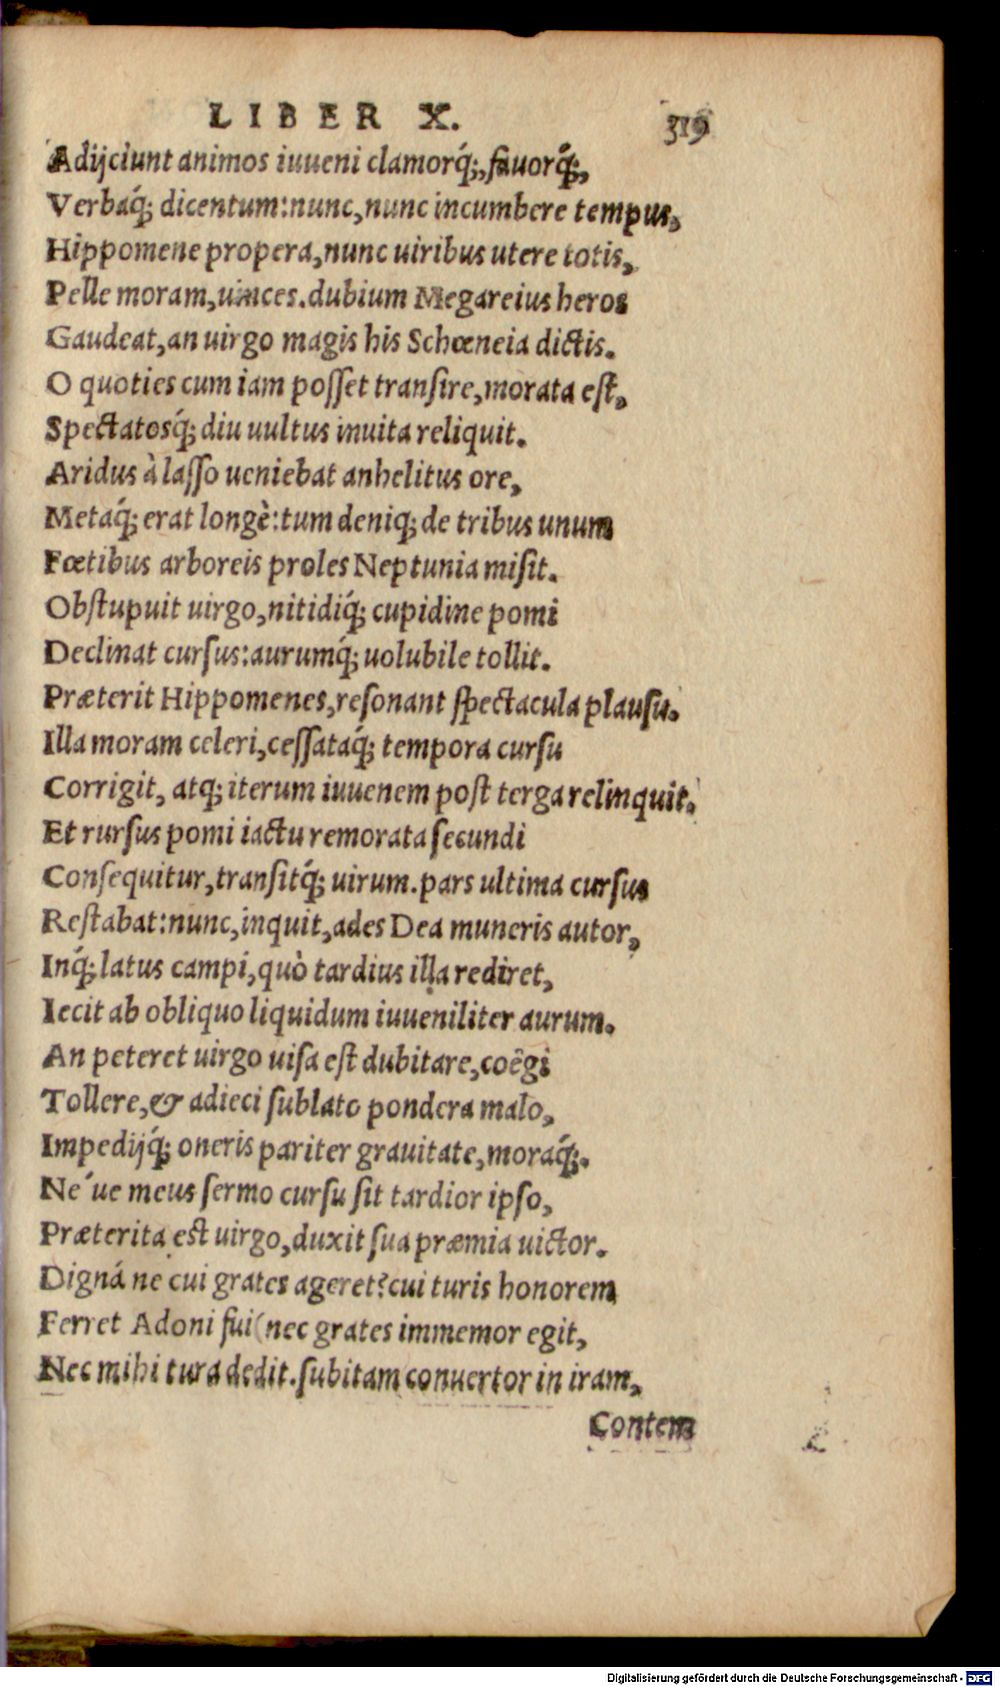 LIBER X. 319
Adijciunt animos iuueni clamorq́;, fauorq́;,
Verbaq́; dicentum: nunc, nunc incumbere tempus,
Hippomene propera, nunc uiribus utere totis,
Pelle moram, uinces. dubium Megareius heros
Gaudeat, an uirgo magis his Schœneia dictis.
O quoties cum iam posset transire, morata est,
Spectatosq́; diu uultus inuita reliquit.
Aridus à lasso ueniebat anhelitus ore,
Metaq́; erat longè: tum deniq; de tribus unum
Fœtibus arboreis proles Neptunia misit.
Obstupuit uirgo, nitidiq́; cupidine pomi
Declinat cursus: aurumq́; uolubile tollit.
Præterit Hippomenes, resonant spectacula plausu.
Illa moram celeri, cessataq́; tempora cursu
Corrigit, atq; iterum iuuenem post terga relinquit.
Et rursus pomi iactu remorata secundi
Consequitur, transitq́; uirum. pars ultima cursus
Restabat: nunc, inquit, ades Dea muneris autor,
Inq́; latus campi, quò tardius illa rediret,
Iecit ab obliquo liquidum iuueniliter aurum.
An peteret uirgo uisa est dubitare, coëgi
Tollere, & adieci sublato pondera malo,
Impedijq́; oneris pariter grauitate, moraq́;.
Ne´ue meus sermo cursu sit tardior ipso,
Præterita est uirgo, duxit sua præmia uictor.
Digná ne cui grates ageret? cui turis honorem
Ferret Adoni fui( nec grates immemor egit,
Nec mihi tura dedit. subitam conuertor in iram,
Contem
Digitalisierung gefördert durch die Deutsche Forschungsgemeinschaft - DFG